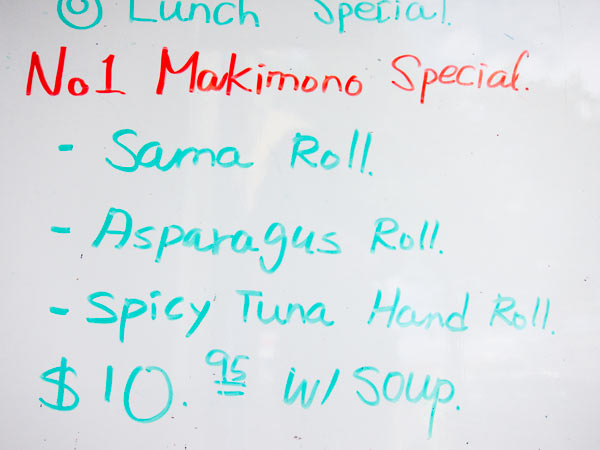 Lunch Special.
No1 Makimono Special.
- Sama Roll.
- Asparagus Roll.
- Spicy Tuna Hand Roll.
$10.95 W/ Soup.